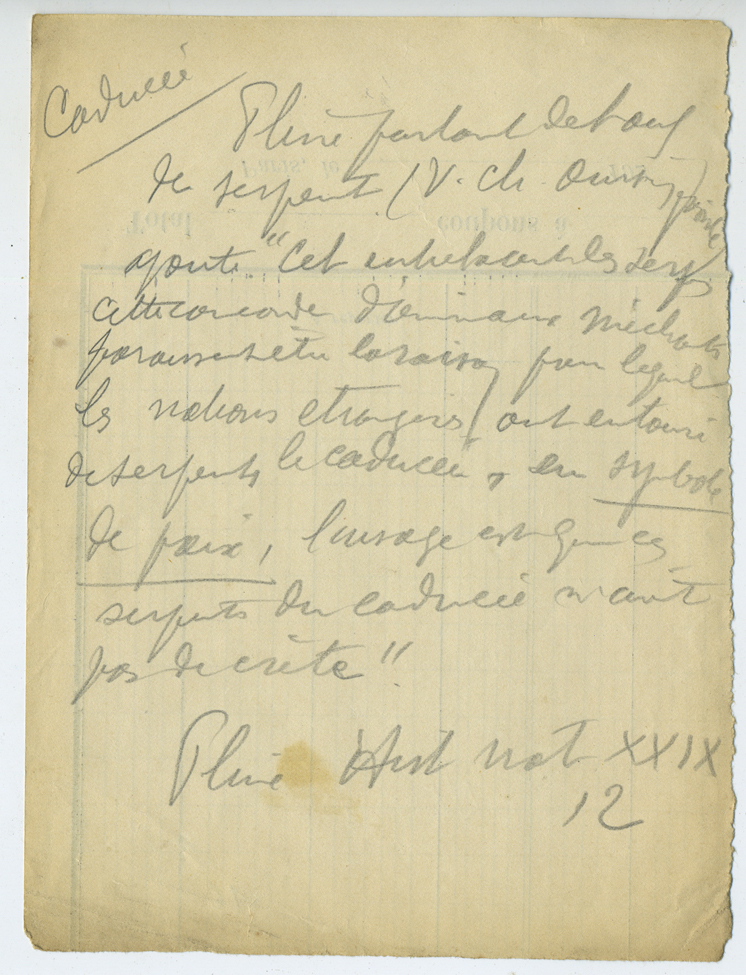 Caducée
Pline parlant de l'oeuf
de serpent (V. ch. oursin
ajoute "Cet entrelacant les serp
cette concorde d'animaux méchants
paraissent être la raison pour lequel
les nations etrangeres ont entouré
de serpents le caducée, en symbole
de paix, l'usage est que ces
serpents du caducée n'aient
pas de crête"
Pline Hist nat XXIX
12